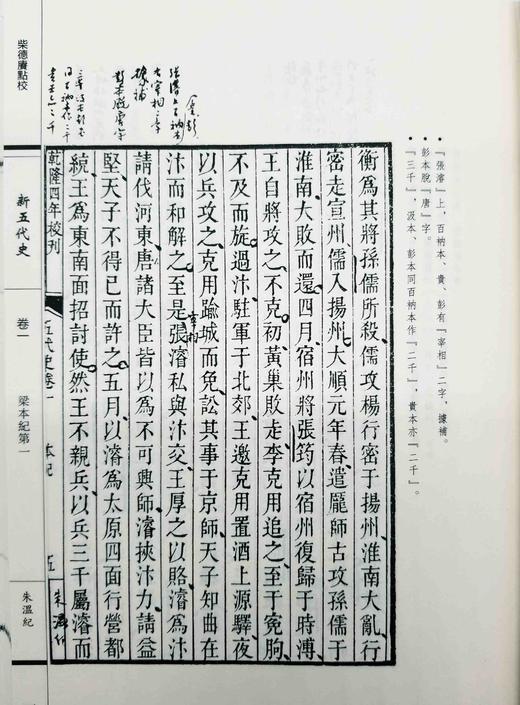 『張濬』上，百衲本、貴、彭有『宰相』二字，據補。
彭本脫『唐』字。
『三千』，汲本、彭本同百衲本作『二千』，貴本亦『二千』。
衡爲其將孫儒所殺儒攻楊行密于揚州淮南大亂行
密走宣州儒入揚州大順元年春遣龐師古攻孫儒于
淮南大敗而還四月宿州將張筠以宿州復歸于時溥
王自將攻之不克初黃巢敗走李克用追之至于冤朐
不及而旋過汴駐軍于北郊王邀克用置酒上源驛夜
以兵攻之克用踰城而免訟其事于京師天子知曲在
汴而和解之至是張濬私與汴交王厚之以賂濬爲汴
宰相
請伐河東唐諸大臣皆以爲不可興師濬挾汴力請益
堅天子不得已而許之五月以濬爲太原四面行營都
統王爲東南面招討使然王不親兵以兵三千屬濬而
乾隆四年校刊
五代史卷一
本紀
五
朱溫紀
張濬上百衲本
有宰相二字
據補
彭本脫唐字
柴德賡點校
新五代史
卷一
梁本紀第一
朱溫紀